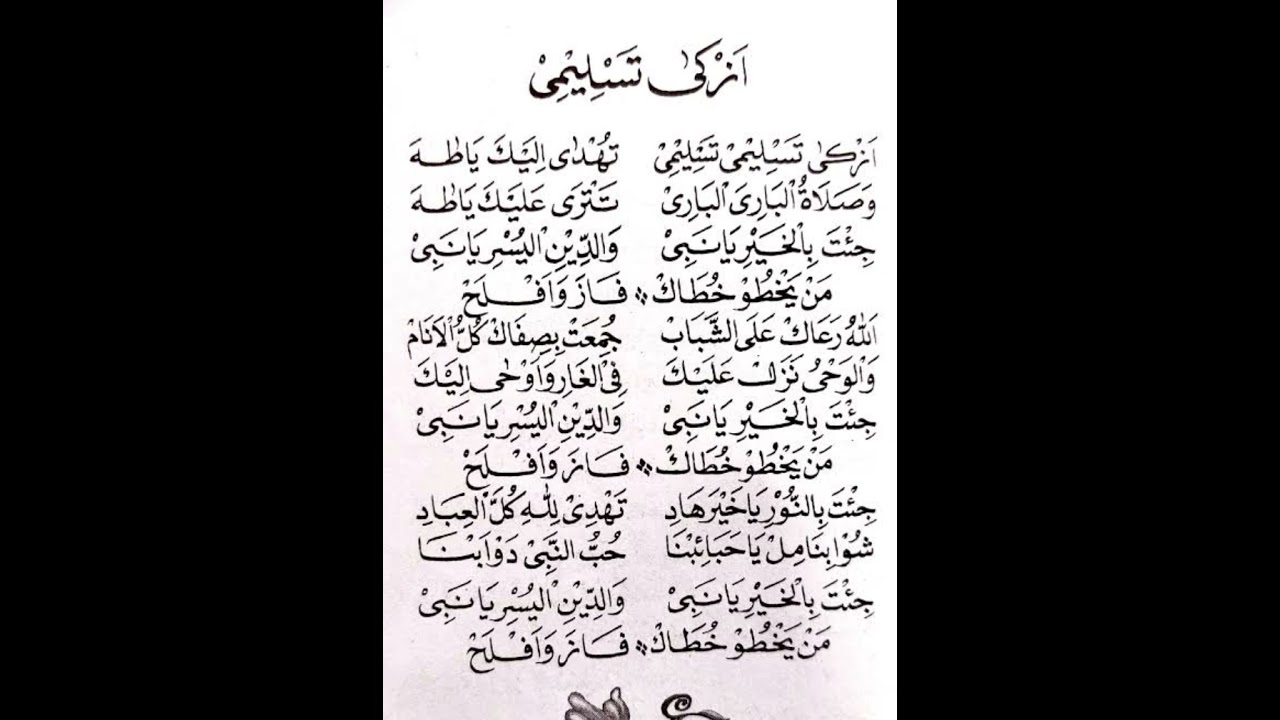 اَزْكىٰ تَسْلِيْمِىْ
اَزْكىٰ تَسْلِيْمِىْ تَسْلِيْمِىْ تُهْدٰى اِلَيْكَ يَاطٰهَ
وَصَلَاةُ الْبَارِىَ الْبَارِىْ تَتْرَى عَلَيْكَ يَاطٰهَ
جِئْتَ بِالْخَيْرِ يَانَبِىْ وَالدِّيْنِ الْيُسْرِ يَانَبِىْ
مَنْ يَخْطُوْ خُطَاكْ ❖ فَازَ وَاَفْلَحْ
اَللهُ رَعَاكْ عَلَى الشَّبَابْ جُمِعَتْ بِصِفَاكْ كُلُّ الْاَنَامْ
وَالْوَحْىُ نَزَلْ عَلَيْكَ فِى الْغَارِ وَاَوْحٰى اِلَيْكَ
جِئْتَ بِالْخَيْرِ يَانَبِىْ وَالدِّيْنِ الْيُسْرِ يَانَبِىْ
مَنْ يَخْطُوْ خُطَاكْ ❖ فَازَ وَاَفْلَحْ
جِئْتَ بِالنُّوْرِ يَا خَيْرَ هَادِ تَهْدِىْ لِلّٰهِ كُلَّ الْعِبَادِ
شُوْا بِنَا مِلْ يَا حَبَائِبْنَا حُبُّ النَّبِىْ دَوَا بْنَا
جِئْتَ بِالْخَيْرِ يَانَبِىْ وَالدِّيْنِ الْيُسْرِ يَانَبِىْ
مَنْ يَخْطُوْ خُطَاكْ ❖ فَازَ وَاَفْلَحْ